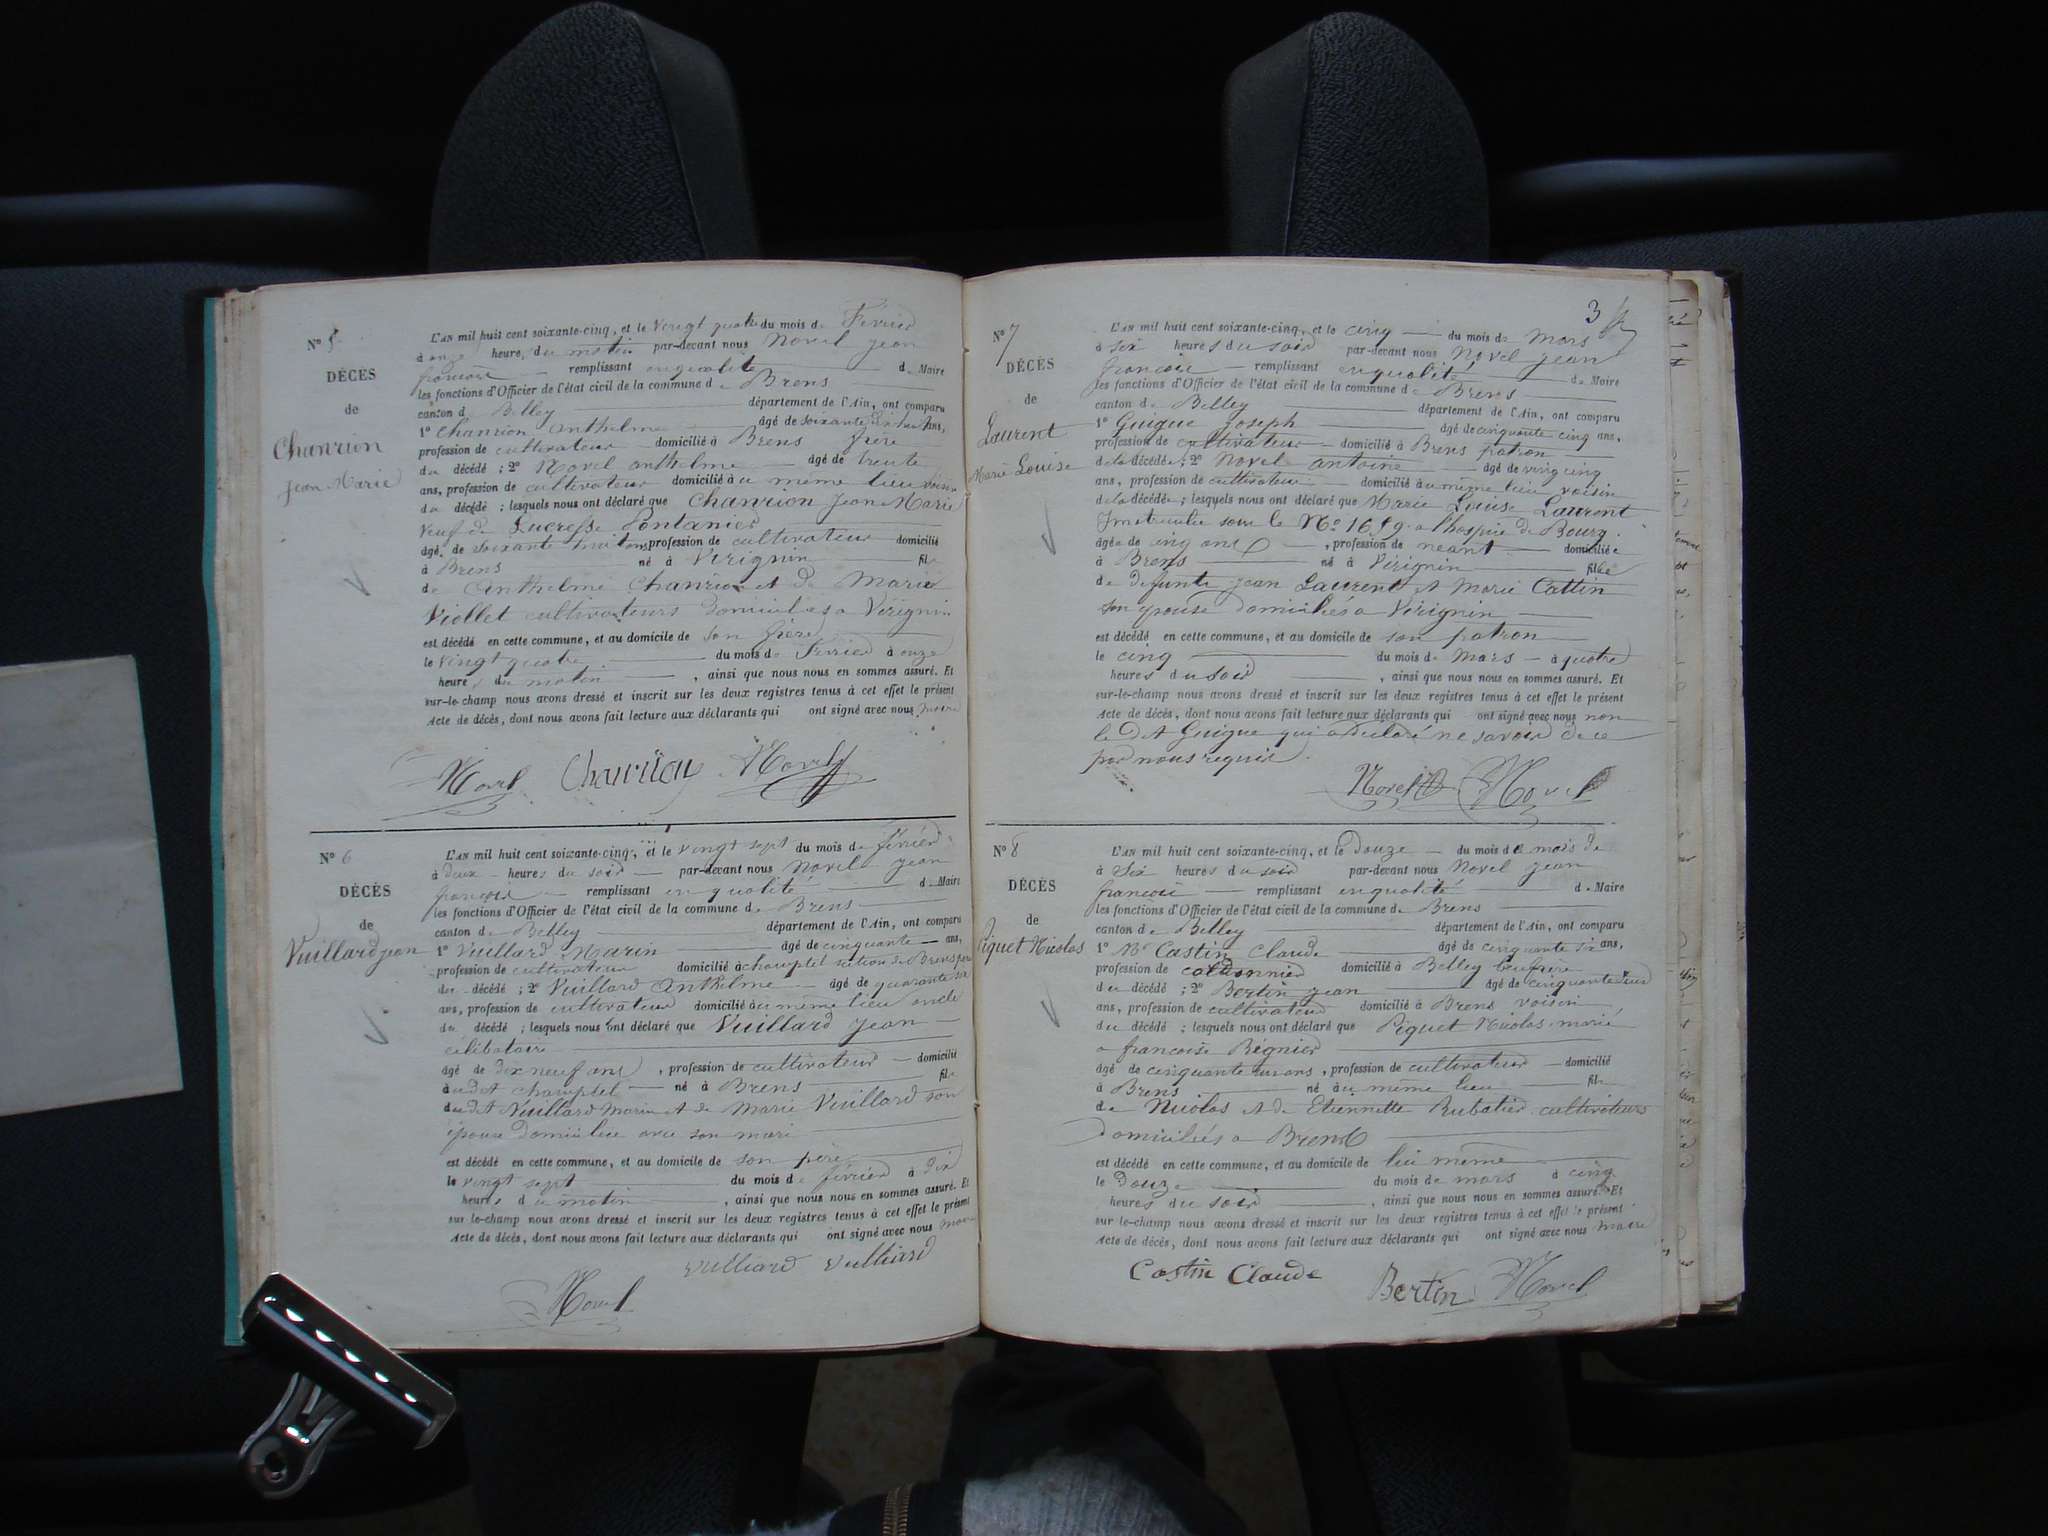 N° 5
DÉCÈS
de
Chanrion
Jean Marie
L'AN mil huit cent soixante-cinq, et le vingt quatre du mois de Février
à onze heure, du matin par-devant nous Novel jean
francois remplissant en qualité de Maire
les fonctions d'Officier de l'état civil de la commune de Brens
canton de Belley département de l'Ain, ont comparu
1° Chanrion Anthelme âgé de soixante dix huit ans,
profession de cultivateur domicilié à Brens frère
du décédé ; 2° Novel anthelme âgé de trente
ans, profession de cultivateur domicilié à u même lieu voisin
du décédé ; lesquels nous ont déclaré que Chanrion Jean Marie
veuf de Lucresse Pontanier
âgé de soixante huit ans, profession de cultivateur domicilié
à Brens né à Virignin fils
de Anthelme Chanrion et de Marie
Viollet cultivateurs domiciliés a Virignin
est décédé en cette commune, et au domicile de son frère
le vingt quatre du mois de Février à onze
heures du matin , ainsi que nous nous en sommes assuré. Et
sur-le-champ nous avons dressé et inscrit sur les deux registres tenus à cet effet le présent
Acte de décès, dont nous avons fait lecture aux déclarants qui ont signé avec nous maire
Novel Chanrion Novel
N° 6
DÉCÈS
de
Vuillard jean
L'AN mil huit cent soixante-cinq, et le vingt sept du mois de février
à deux heures du soir par-devant nous Novel jean
francois remplissant en qualité de Maire
les fonctions d'Officier de l'état civil de la commune de Brens
canton de Belley département de l'Ain, ont comparu
1° Vuillard Marin âgé de cinquante ans,
profession de cultivateur domicilié à champtel section de Brens père
du décédé ; 2° Vuillard Anthelme âgé de quarante six
ans, profession de cultivateur domicilié à u même lieu oncle
du décédé ; lesquels nous ont déclaré que Vuillard Jean
celibataire
âgé de dix neuf ans , profession de cultivateur domicilié
à udit champtel né à Brens fils
du dit Vuillard Marin et de Marie Vuillard son
épouse domiciliée avec son mari
est décédé en cette commune, et au domicile de son père
le vingt sept du mois de février à dix
heures du matin , ainsi que nous nous en sommes assuré. Et
sur le-champ nous avons dressé et inscrit sur les deux registres tenus à cet effet le présent
Acte de décès, dont nous avons fait lecture aux déclarants qui ont signé avec nous maire
vulliard vulliard
Novel
3
N° 7
DÉCÈS
de
Laurent
Marie Louise
L'AN mil huit cent soixante-cinq, et le cinq du mois de Mars
à six heures du soir par-devant nous Novel jean
francois remplissant en qualité de Maire
les fonctions d'Officier de l'état civil de la commune de Brens
canton de Belley département de l'Ain, ont comparu
1° Guigue Joseph âgé de cinquante cinq ans,
profession de cultivateur domicilié à Brens patron
de la décédée ; 2° Novel antoine âgé de ving cinq
ans, profession de cultivateur domicilié à u même lieu voisin
de la décédée ; lesquels nous ont déclaré que Marie Louise Laurent
Immatriculée sous le N° a l'hospice de Bourg
âgée de cinq ans , profession de néant domiciliée
à Brens né à Virignin fille
de defunts jean Laurent et Marie Cattin
son epouse domiciliés a Virignin
est décédé en cette commune, et au domicile de son patron
le cinq du mois de Mars à quatre
heures du soir , ainsi que nous nous en sommes assuré. Et
sur-le-champ nous avons dressé et inscrit sur les deux registres tenus à cet effet le présent
Acte de décès, dont nous avons fait lecture aux déclarants qui ont signé avec nous non
le dit Guigue qui a déclaré ne savoir de ce
par nous requis
Novel Novel
N° 8
DÉCÈS
de
Piquet Nicolas
L'AN mil huit cent soixante-cinq, et le douze du mois de mars de
à Six heures du soir par-devant nous Novel jean
francois remplissant en qualité de Maire
les fonctions d'Officier de l'état civil de la commune de Brens
canton de Belley département de l'Ain, ont comparu
1° Castin Claude âgé de cinquante six ans,
profession de cordonnier domicilié à Belley beufrère
du décédé ; 2° Bertin jean âgé de cinquante deux
ans, profession de cultivateur domicilié à Brens voisin
du décédé ; lesquels nous ont déclaré que Piquet Nicolas marié
a francoise Régnier
âgé de cinquante un ans , profession de cultivateur domicilié
à Brens né à u même lieu fils
de Nicolas et de Etiennette Rubatier cultivateurs
domiciliés a Brens
est décédé en cette commune, et au domicile de lui même
le douze du mois de mars à cinq
heures du soir , ainsi que nous nous en sommes assuré. Et
sur-le-champ nous avons dressé et inscrit sur les deux registres tenus à cet effet le présent
Acte de décès, dont nous avons fait lecture aux déclarants qui ont signé avec nous maire
Castin Claude Bertin Novel